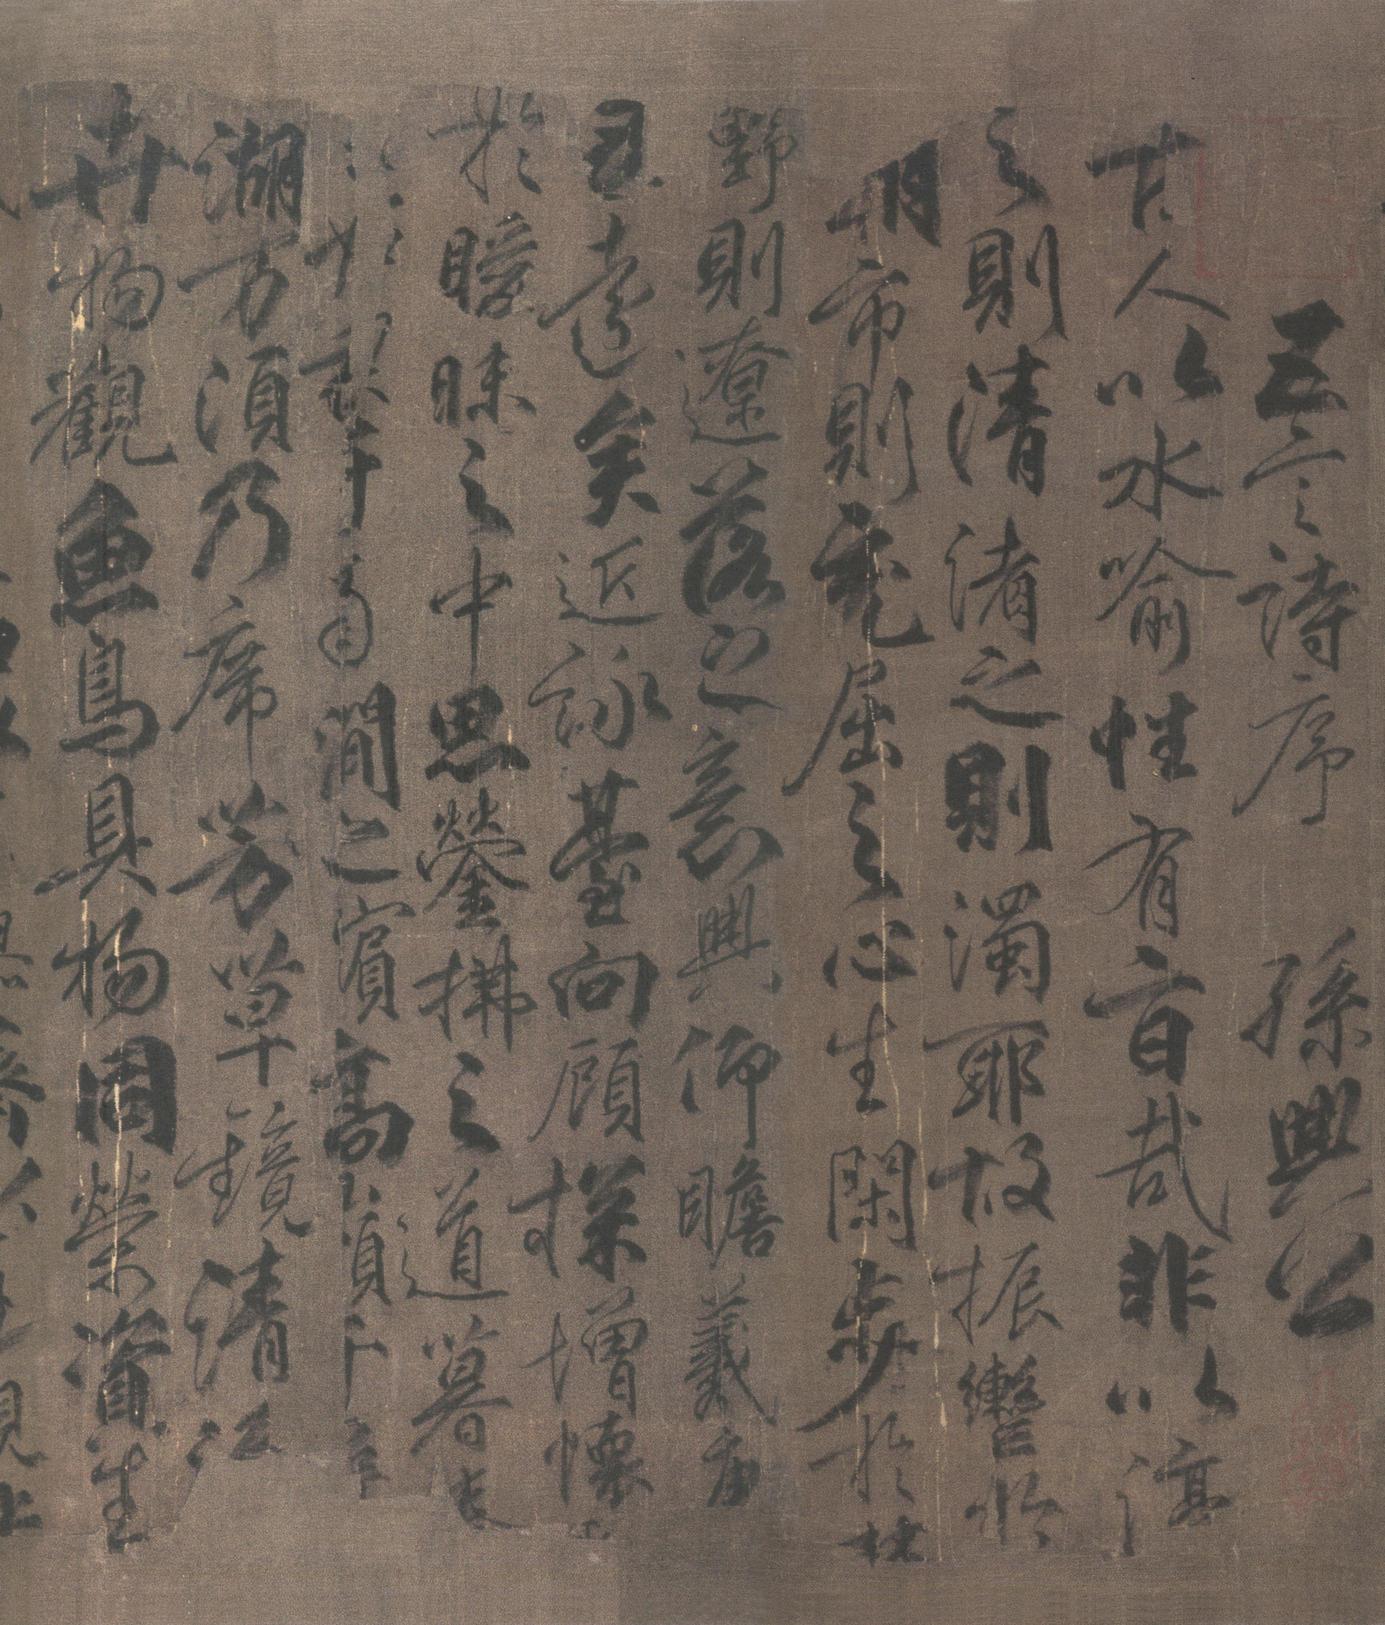 五言詩序 孫興公
古人以水喻性有旨哉非以渟
之則清渚之則濁耶故振轡於
朝市則充屈之心生閑步於林
野則遼落之意興仰瞻羲唐
遠矣近詠臺向顧探增懷
於曖昧之中思鎣拂之道暮春
于南澗之濱高嶺千尋
湖万頃乃席芳草鏡清流
卉物觀魚鳥具物同榮資生